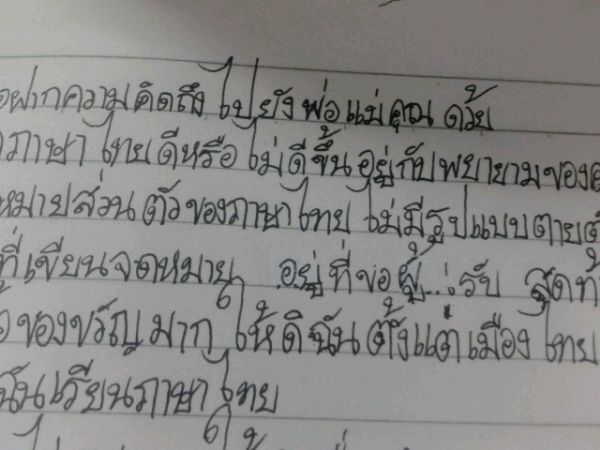 ฝากความคิดถึงไปยังพ่อแม่คุณ ด้วย
ภาษาไทยดีหรือไม่ดีขึ้นอยู่กับพยายามของ
หมายส่วนตัวของภาษาไทยไม่มีรูปแบบตายตั
ที่เขียนจดหมาย อยู่ที่ขอผู้...รับ สุดท้
ของขวัญมากให้ดิฉันตั้งแต่เมืองไทย
ฉันเรียนภาษาไทย